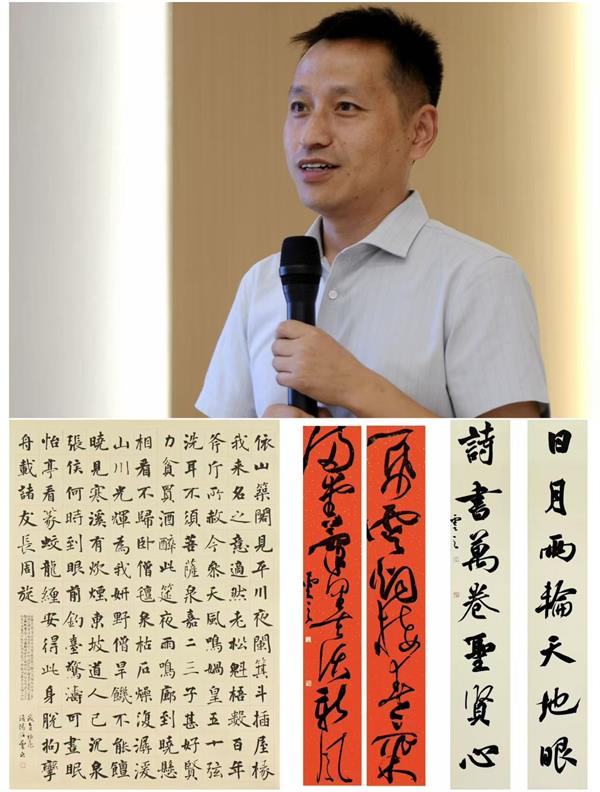 依山築閣見平川夜闌箕斗插屋椽
我來名之意適然老松魁梧數百年
斧斤所赦今參天風鳴媧皇五十弦
洗耳不須菩薩泉嘉二三子甚好賢
力貧買酒醉此筵夜雨鳴廊到曉懸
相看不歸臥僧氈泉枯石燥復潺湲
山川光輝為我妍野僧旱饑不能饘
曉見寒溪有炊煙東坡道人已沉泉
張侯何時到眼前釣臺驚濤可晝眠
怡亭看篆蛟龍纏安得此身脫拘攣
舟載諸友長周旋
日月兩輪天地眼
詩書萬卷聖賢心
雲之